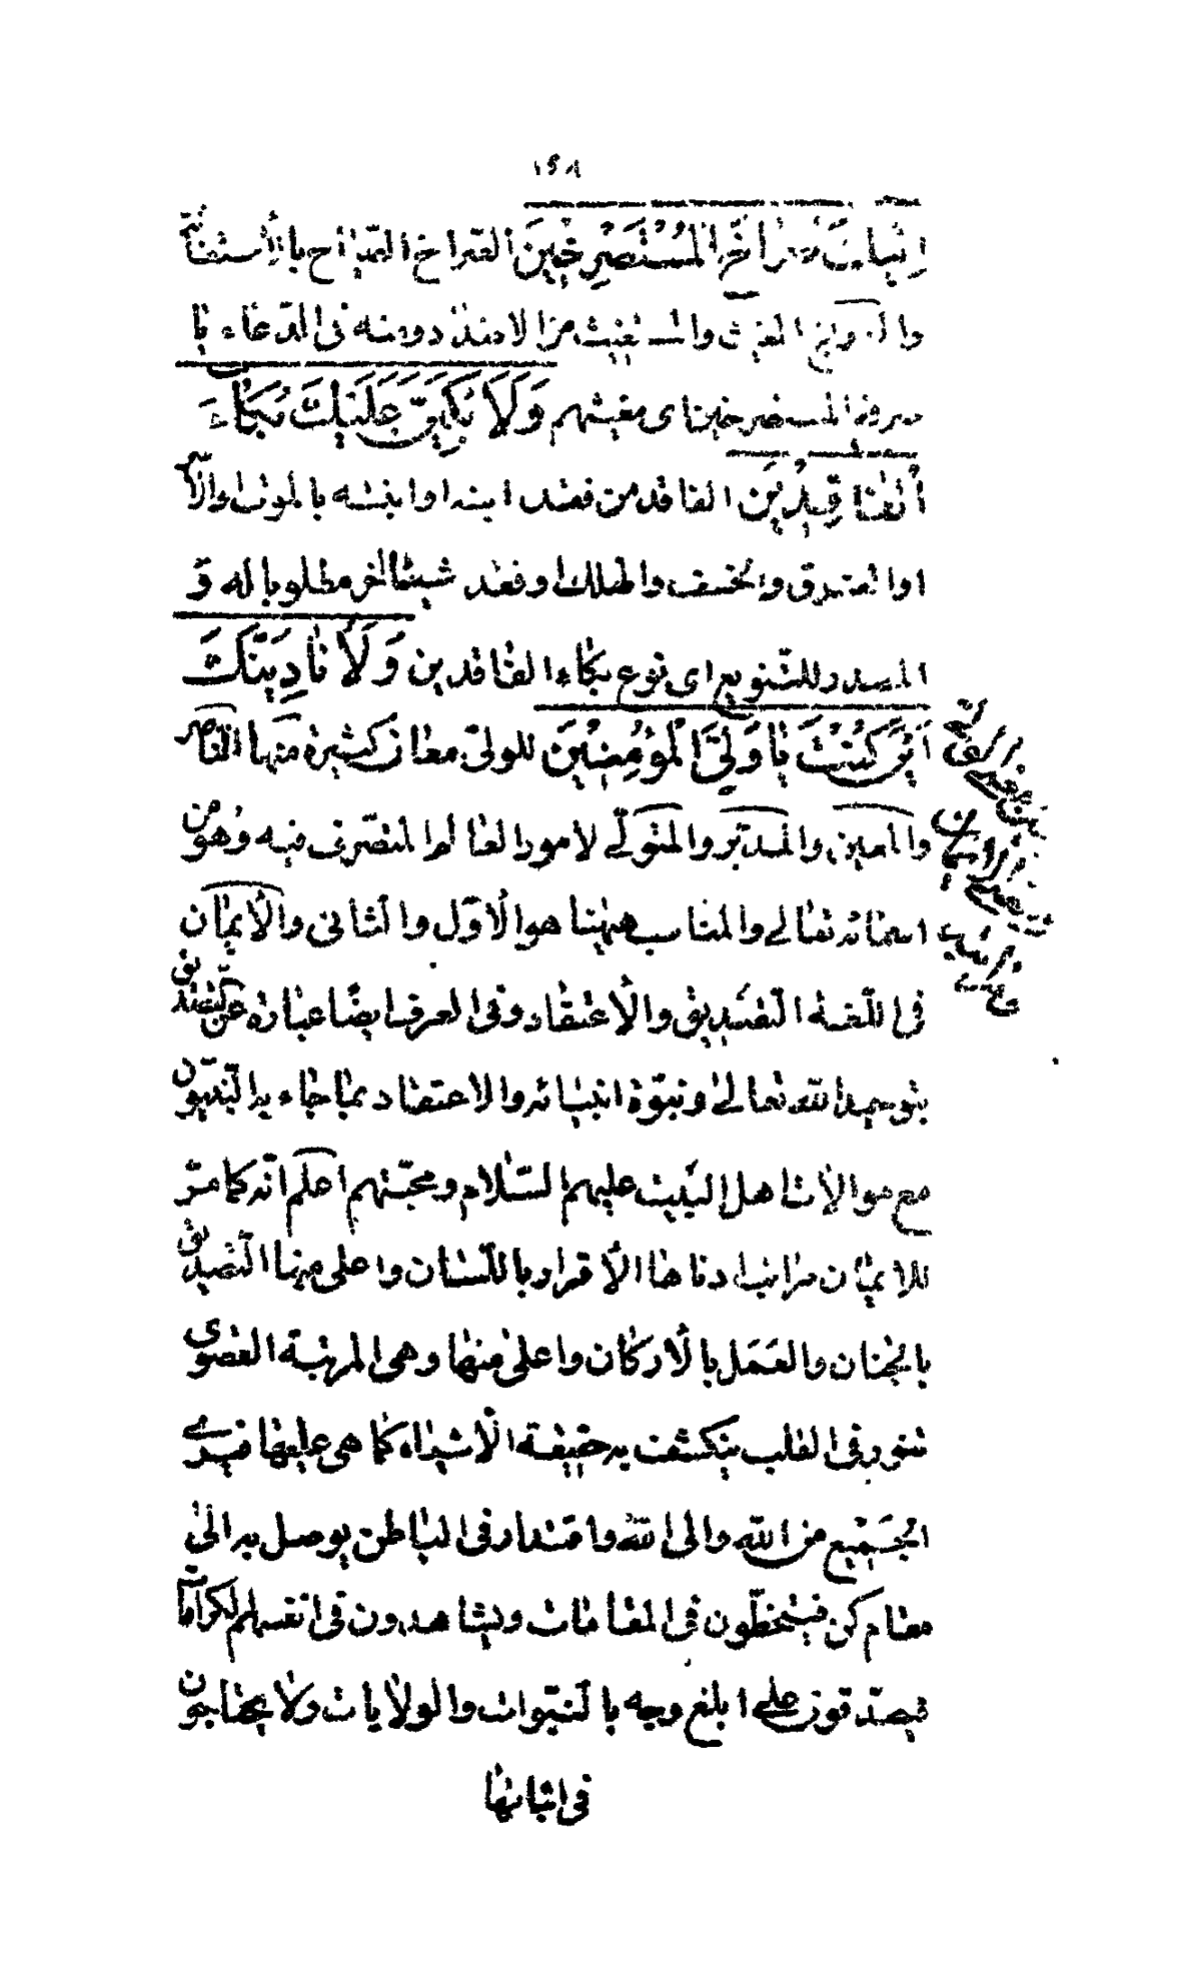 ١٤٨
اِلَيْكَ صُرَاخَ الْمُسْتَصْرِخِينَ الصراخ الصياح بالاستغاثة
والمستغيث ومنه فى الدعاء يا
المستصرخين اى مغيثهم وَلَاَبْكِيَنَّ عَلَيْكَ بُكَاءَ
الْفَاقِدِيْنَ الفاقد من فقد ابنه او ابنته بالموت والا
او والخسف والهلاك او فقد شيئا اخر مطلوبا له و
المصدر للتنويع اى نوع بكاء الفاقدين وَلَاُنَادِيَنَّكَ
اَيْنَ كُنْتَ يَا وَلِيَّ الْمُؤْمِنِيْنَ للولى معان كثيرة منها الناصر
والمعين والمدبر والمتولى لامور العالم المتصرف فيه وهو من
اسمائه تعالى والمناسب ههنا هو الاول والثانى والايمان
فى اللغة التصديق والاعتقاد وفى العرف ايضا عبارة عن التصديق
بتوحيد الله تعالى ونبوة انبيائه والاعتقاد بما جاء به النبيون
مع موالات اهل البيت عليهم السلام ومحبتهم اعلم انه كما مر
للايمان مراتب ادناها الاقرار باللسان واعلى منها التصديق
بالجنان والعمل بالاركان واعلى منها وهى المرتبة القصوى
تنور فى القلب ينكشف به حقيقة الاشياء كما هى عليها فيرى
الجميع من الله والى الله واقتدار فى الباطن يوصل به الى
مقام كن فيتخطون فى المقامات ويشاهدون فى انفسهم الكرامات
فيصدقون على ابلغ وجه بالنبوات والولايات ولا يحتاجون
فى اثباتها